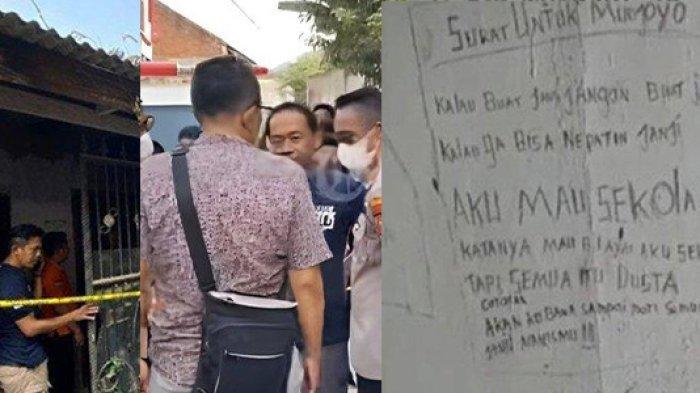 SURAT UNTUK MULYOYO
KALAU BUAT JANJI JANGAN BUAT
KALAU GA BISA NEPATIN JANJI
AKU MAU SEKOLA
KATANYA MAU BIAYAI AKU SE
TAPI SEMUA ITU DUSTA
AKAN KU BAWA SAMPAI MATI SEMUA
JANJI MANISMU !!!